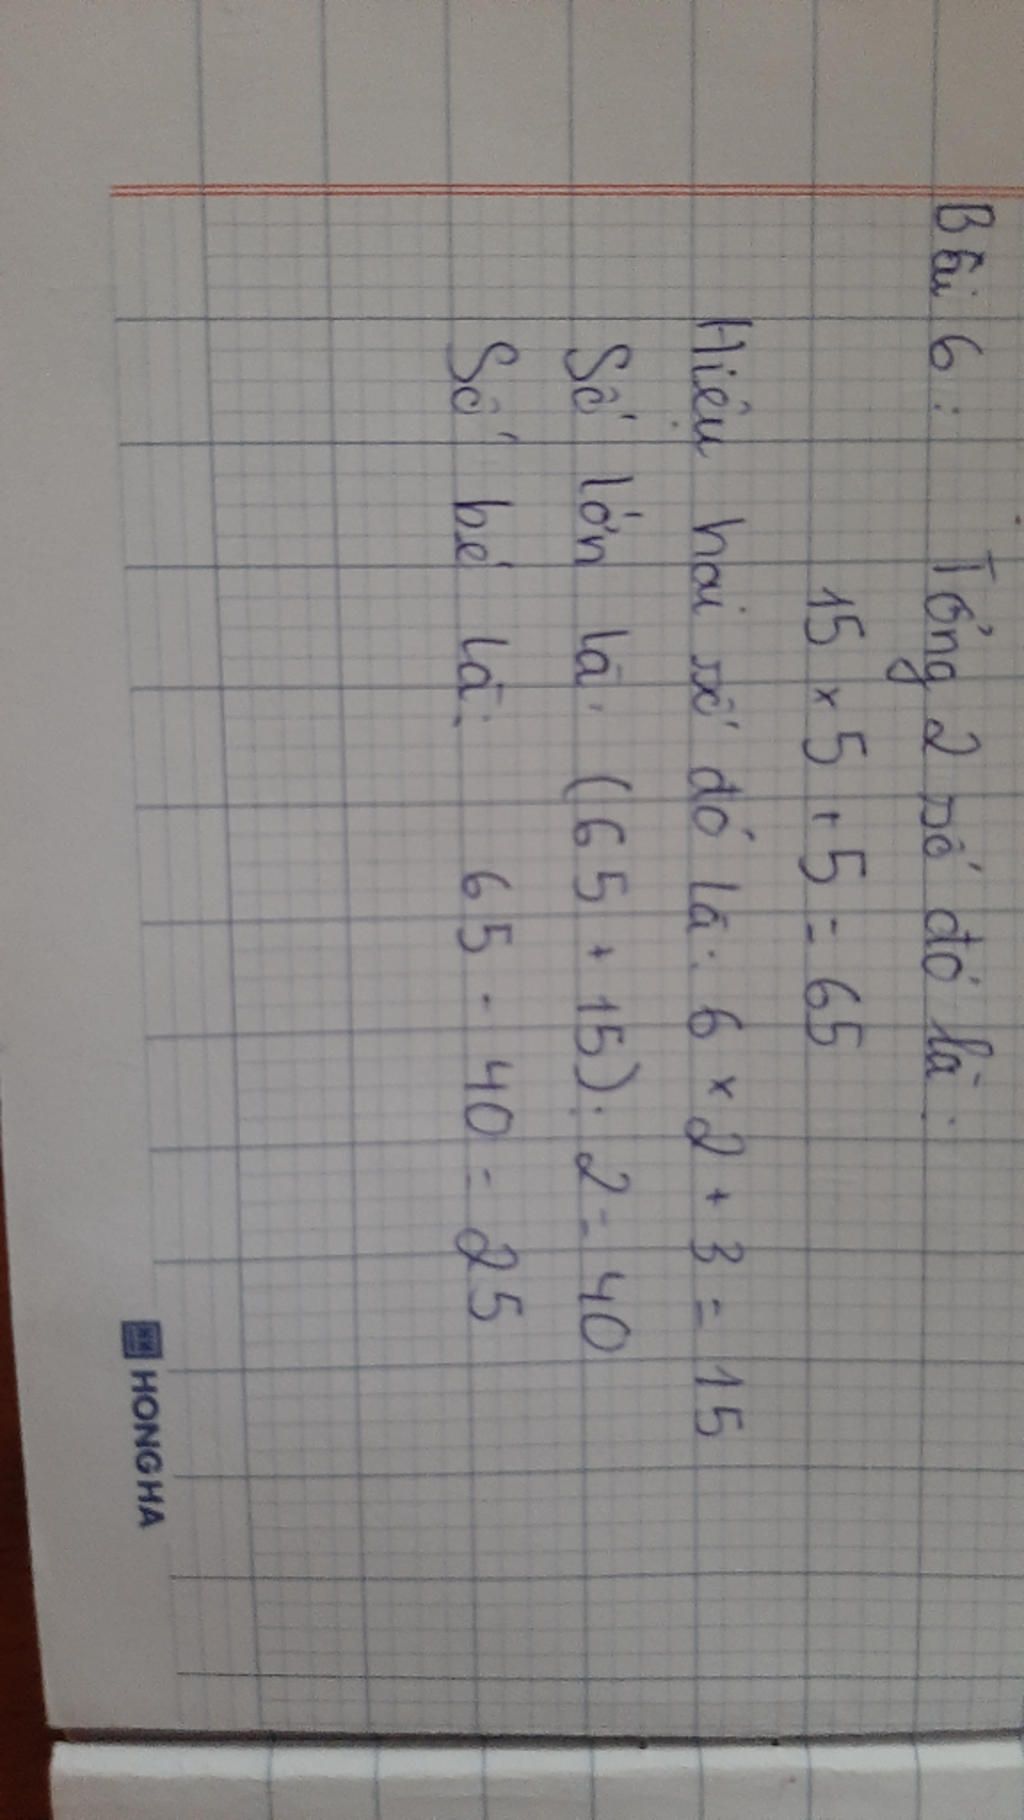 Bài 6: Tổng 2 số đó là:
15 x 5 + 5 = 65
Hiệu hai số đó là: 6 x 2 + 3 = 15
Số lớn là: (65 + 15) : 2 = 40
Số bé là: 65 - 40 = 25
HONG HA